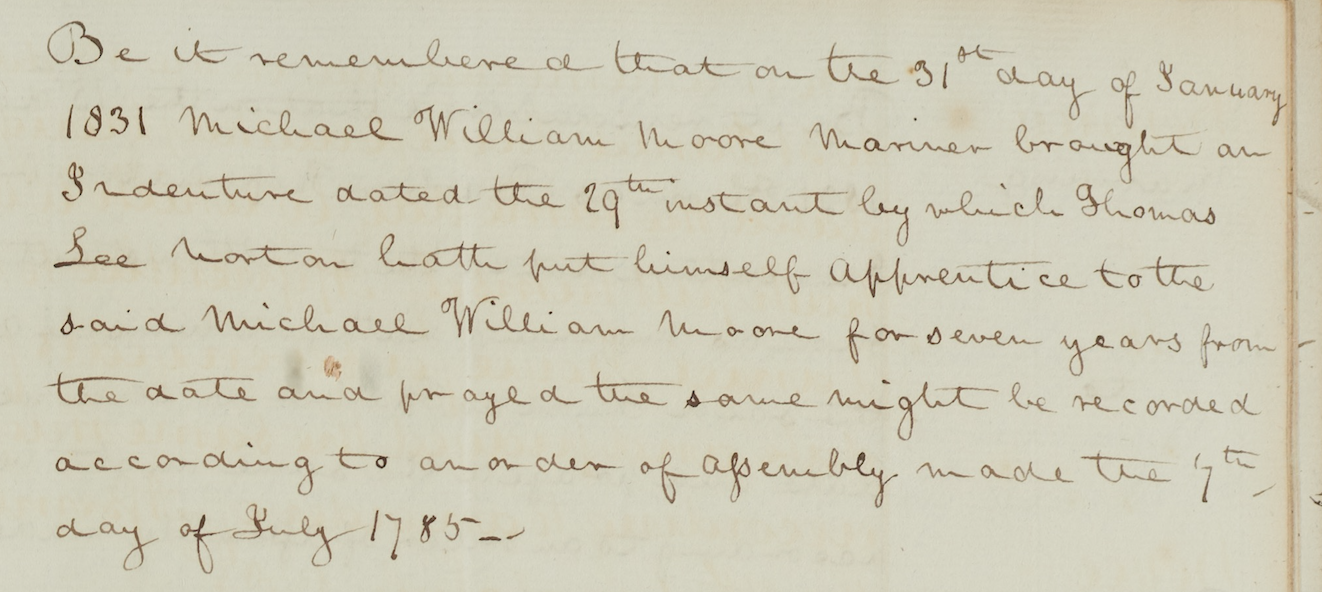 Be it remembered that on the 31st day of January
1831 Michael William Moore Mariner brought an
Indenture dated the 29th instant by which Thomas
Lee Norton hath put himself Apprentice to the
said Michael William Moore for seven years from
the date and prayed the same might be recorded
according to an order of Assembly made the 7th
day of July 1785